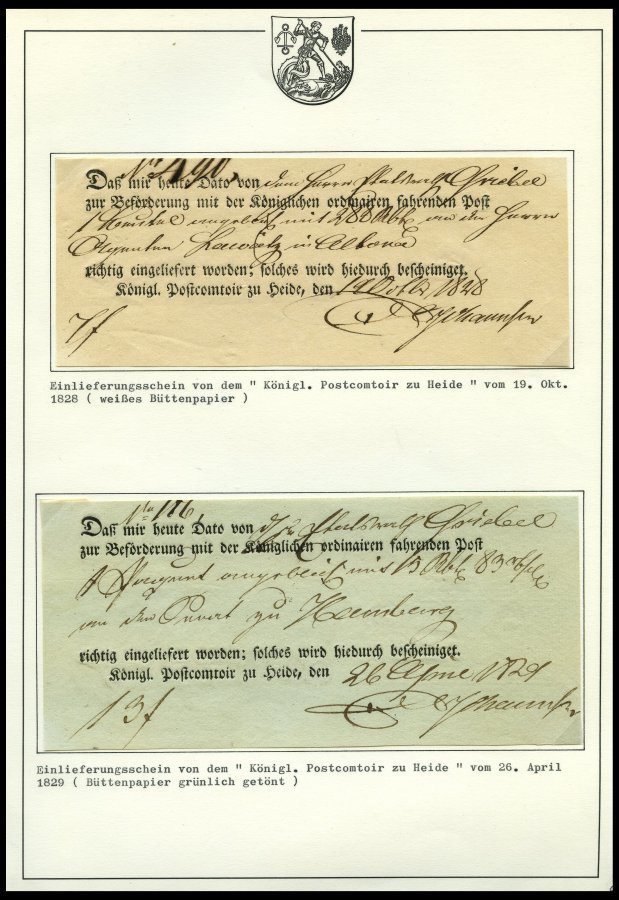 No 490,
Daß mir heute Dato von dem Herrn Griebel
zur Beförderung mit der Königlichen ordinairen fahrenden Post
1 Beutel angeblich mit an den Herrn
Agenten in Altona
richtig eingeliefert worden; solches wird hiedurch bescheiniget.
Königl. Postcomtoir zu Heide, den 19 Octbr 1828
7ß Johannsen
Einlieferungsschein von dem " Königl. Postcomtoir zu Heide " vom 19. Okt.
1828 ( weißes Büttenpapier )
No 116,
Daß mir heute Dato von Griebel
zur Beförderung mit der Königlichen ordinairen fahrenden Post
1 angeblich mit 13 Rbt 83
an den zu Hamburg
richtig eingeliefert worden; solches wird hiedurch bescheiniget.
Königl. Postcomtoir zu Heide, den 26 April 1829
13ß Johannsen
Einlieferungsschein von dem " Königl. Postcomtoir zu Heide " vom 26. April
1829 ( Büttenpapier grünlich getönt )